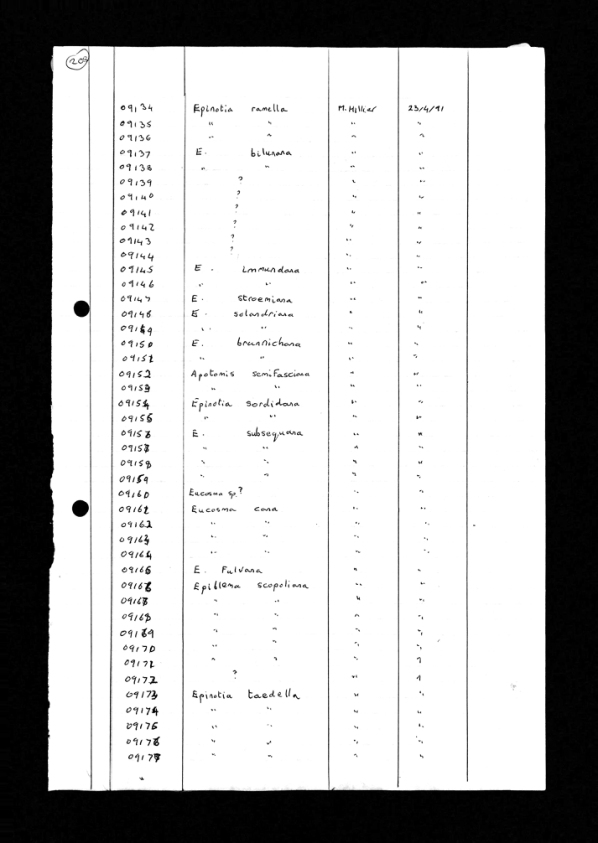 209
09134 Epinotia ramella M. Hillier 23/4/91
09135 " " " "
09136 " " " "
09137 E. bilunana " "
09138 " " " "
09139 ? " "
09140 ? " "
09141 ? " "
09142 ? " "
09143 ? " "
09144 ? " "
09145 E. immundana " "
09146 " " " "
09147 E. stroemiana " "
09148 E. solandriana " "
09149 " " " "
09150 E. brunnichana " "
09151 " " " "
09152 Apotomis semifasciana " "
09153 " " " "
09154 Epinotia sordidana " "
09155 " " " "
09156 E. subsequana " "
09157 " " " "
09158 " " " "
09159 " " " "
09160 Eucosma sp? " "
09161 Eucosma cana " "
09162 " " " "
09163 " " " "
09164 " " " "
09165 E. fulvana " "
09166 Epiblema scopoliana " "
09167 " " " "
09168 " " " "
09169 " " " "
09170 " " " "
09171 " " " "
09172 ? " "
09173 Epinotia taedella " "
09174 " " " "
09175 " " " "
09176 " " " "
09177 " " " "
"